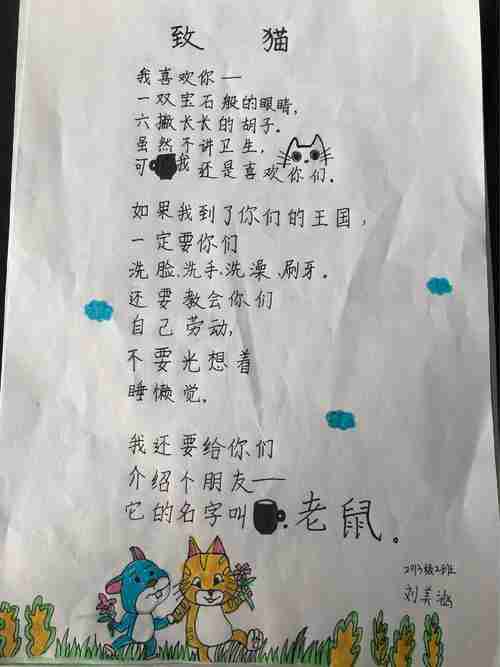 致 猫
我喜欢你——
一双宝石般的眼睛，
六撇长长的胡子。
虽然不讲卫生，
可我还是喜欢你们。
如果我到了你们的王国，
一定要你们
洗脸、洗手、洗澡、刷牙。
还要教会你们
自己劳动，
不要光想着
睡懒觉。
我还要给你们
介绍个朋友——
它的名字叫 老鼠。
2013级2班
刘美